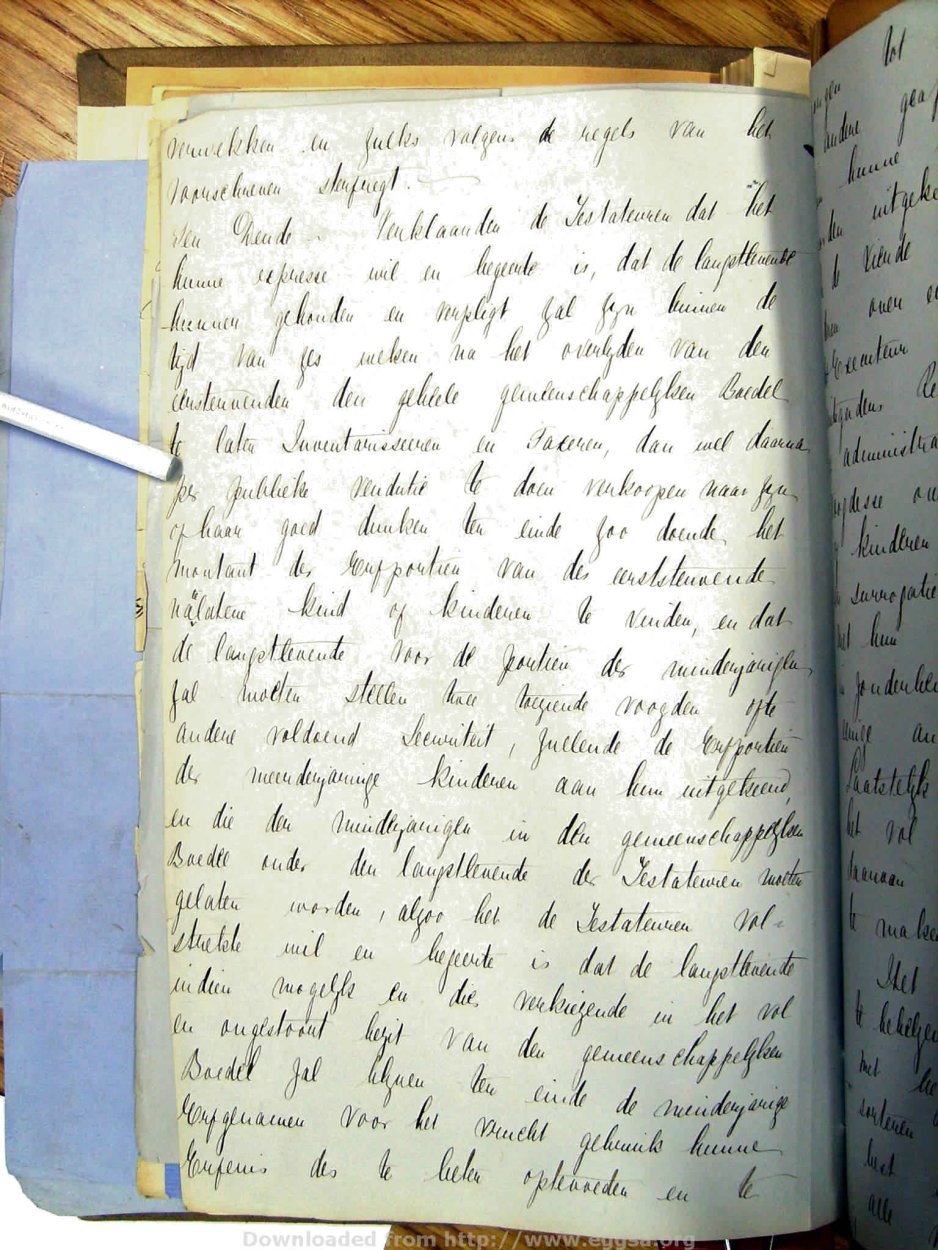 verwekken en zulks volgens de regels van het
voorschreven sterfregt.
Ten Derde Verklaarden de Testateuren dat het
hunne expresse wil en begeerte is, dat de langstlevende
hunner gehouden en verpligt zal zyn binnen de
tijd van zes weken na het overlyden van den
eerstervenden den geheele gemeenschappelyken Boedel
te laten Inventarisseeren en Taxeren, dan wel daarna
per publieke vendutie te doen verkoopen naar zyn
of haar goed dunken ten einde zoo doende het
montant der Erfportien van des eerststervende
nälatene kind of kinderen te vinden, en dat
de langstlevende voor de portien der minderjarigen
zal moeten stellen twee toeziende voogden ofte
andere voldoend Securiteit, zullende de Erfportien
der meerderjarige kinderen aan hun uitgekeerd,
en die den minderjarigen in den gemeenschappelyken
Boedel onder den langstlevende der Testateuren moeten
gelaten worden, alzoo het de Testateuren vol-
strekte wil en begeerte is dat de langstlevende
indien mogelyk en dies verkiezende in het vol
en ongestoort bezit van den gemeenschappelyken
Boedel zal blyven ten einde de minderjarige
Erfgenamen voor het vrucht gebruik hunne
Erfenis des te beter optevoeden en te
tot
andere
hunne
uitgeke
te Vierde
over
Executeur
administra
kinderen
surrogatie
met hun
zonderhei
eenige an
Laatstelyk
het vol
daarvan
te maken
Het
met
best
alle
Downloaded from http://www.eggsa.org